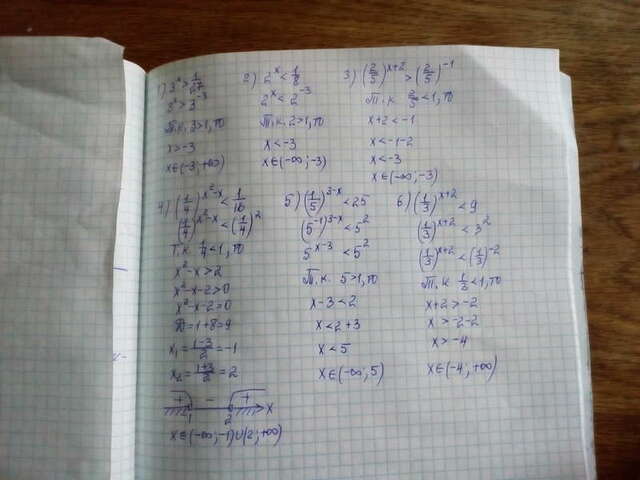 1) 3ˣ > 1/27
3ˣ > 3⁻³
Т.к. 3>1, то
x > -3
x∈(-3; +∞)
2) 2ˣ < 1/8
2ˣ < 2⁻³
Т.к. 2>1, то
x < -3
x∈(-∞; -3)
3) (2/5)ˣ⁺² > (2/5)⁻¹
Т.к. 2/5 < 1, то
x+2 < -1
x < -1-2
x < -3
x∈(-∞; -3)
4) (1/4)^(x²-x) < 1/16
(1/4)^(x²-x) < (1/4)²
Т.к. 1/4 < 1, то
x²-x > 2
x²-x-2 > 0
x²-x-2 = 0
D = 1+8 = 9
x₁ = (1-3)/2 = -1
x₂ = (1+3)/2 = 2
+ - +
-1 2 x
x∈(-∞; -1)∪(2; +∞)
5) (1/5)³⁻ˣ < 25
(5⁻¹)³⁻ˣ < 5²
5ˣ⁻³ < 5²
Т.к. 5>1, то
x-3 < 2
x < 2+3
x < 5
x∈(-∞; 5)
6) (1/3)ˣ⁺² < 9
(1/3)ˣ⁺² < 3²
(1/3)ˣ⁺² < (1/3)⁻²
Т.к. 1/3 < 1, то
x+2 > -2
x > -2-2
x > -4
x∈(-4; +∞)